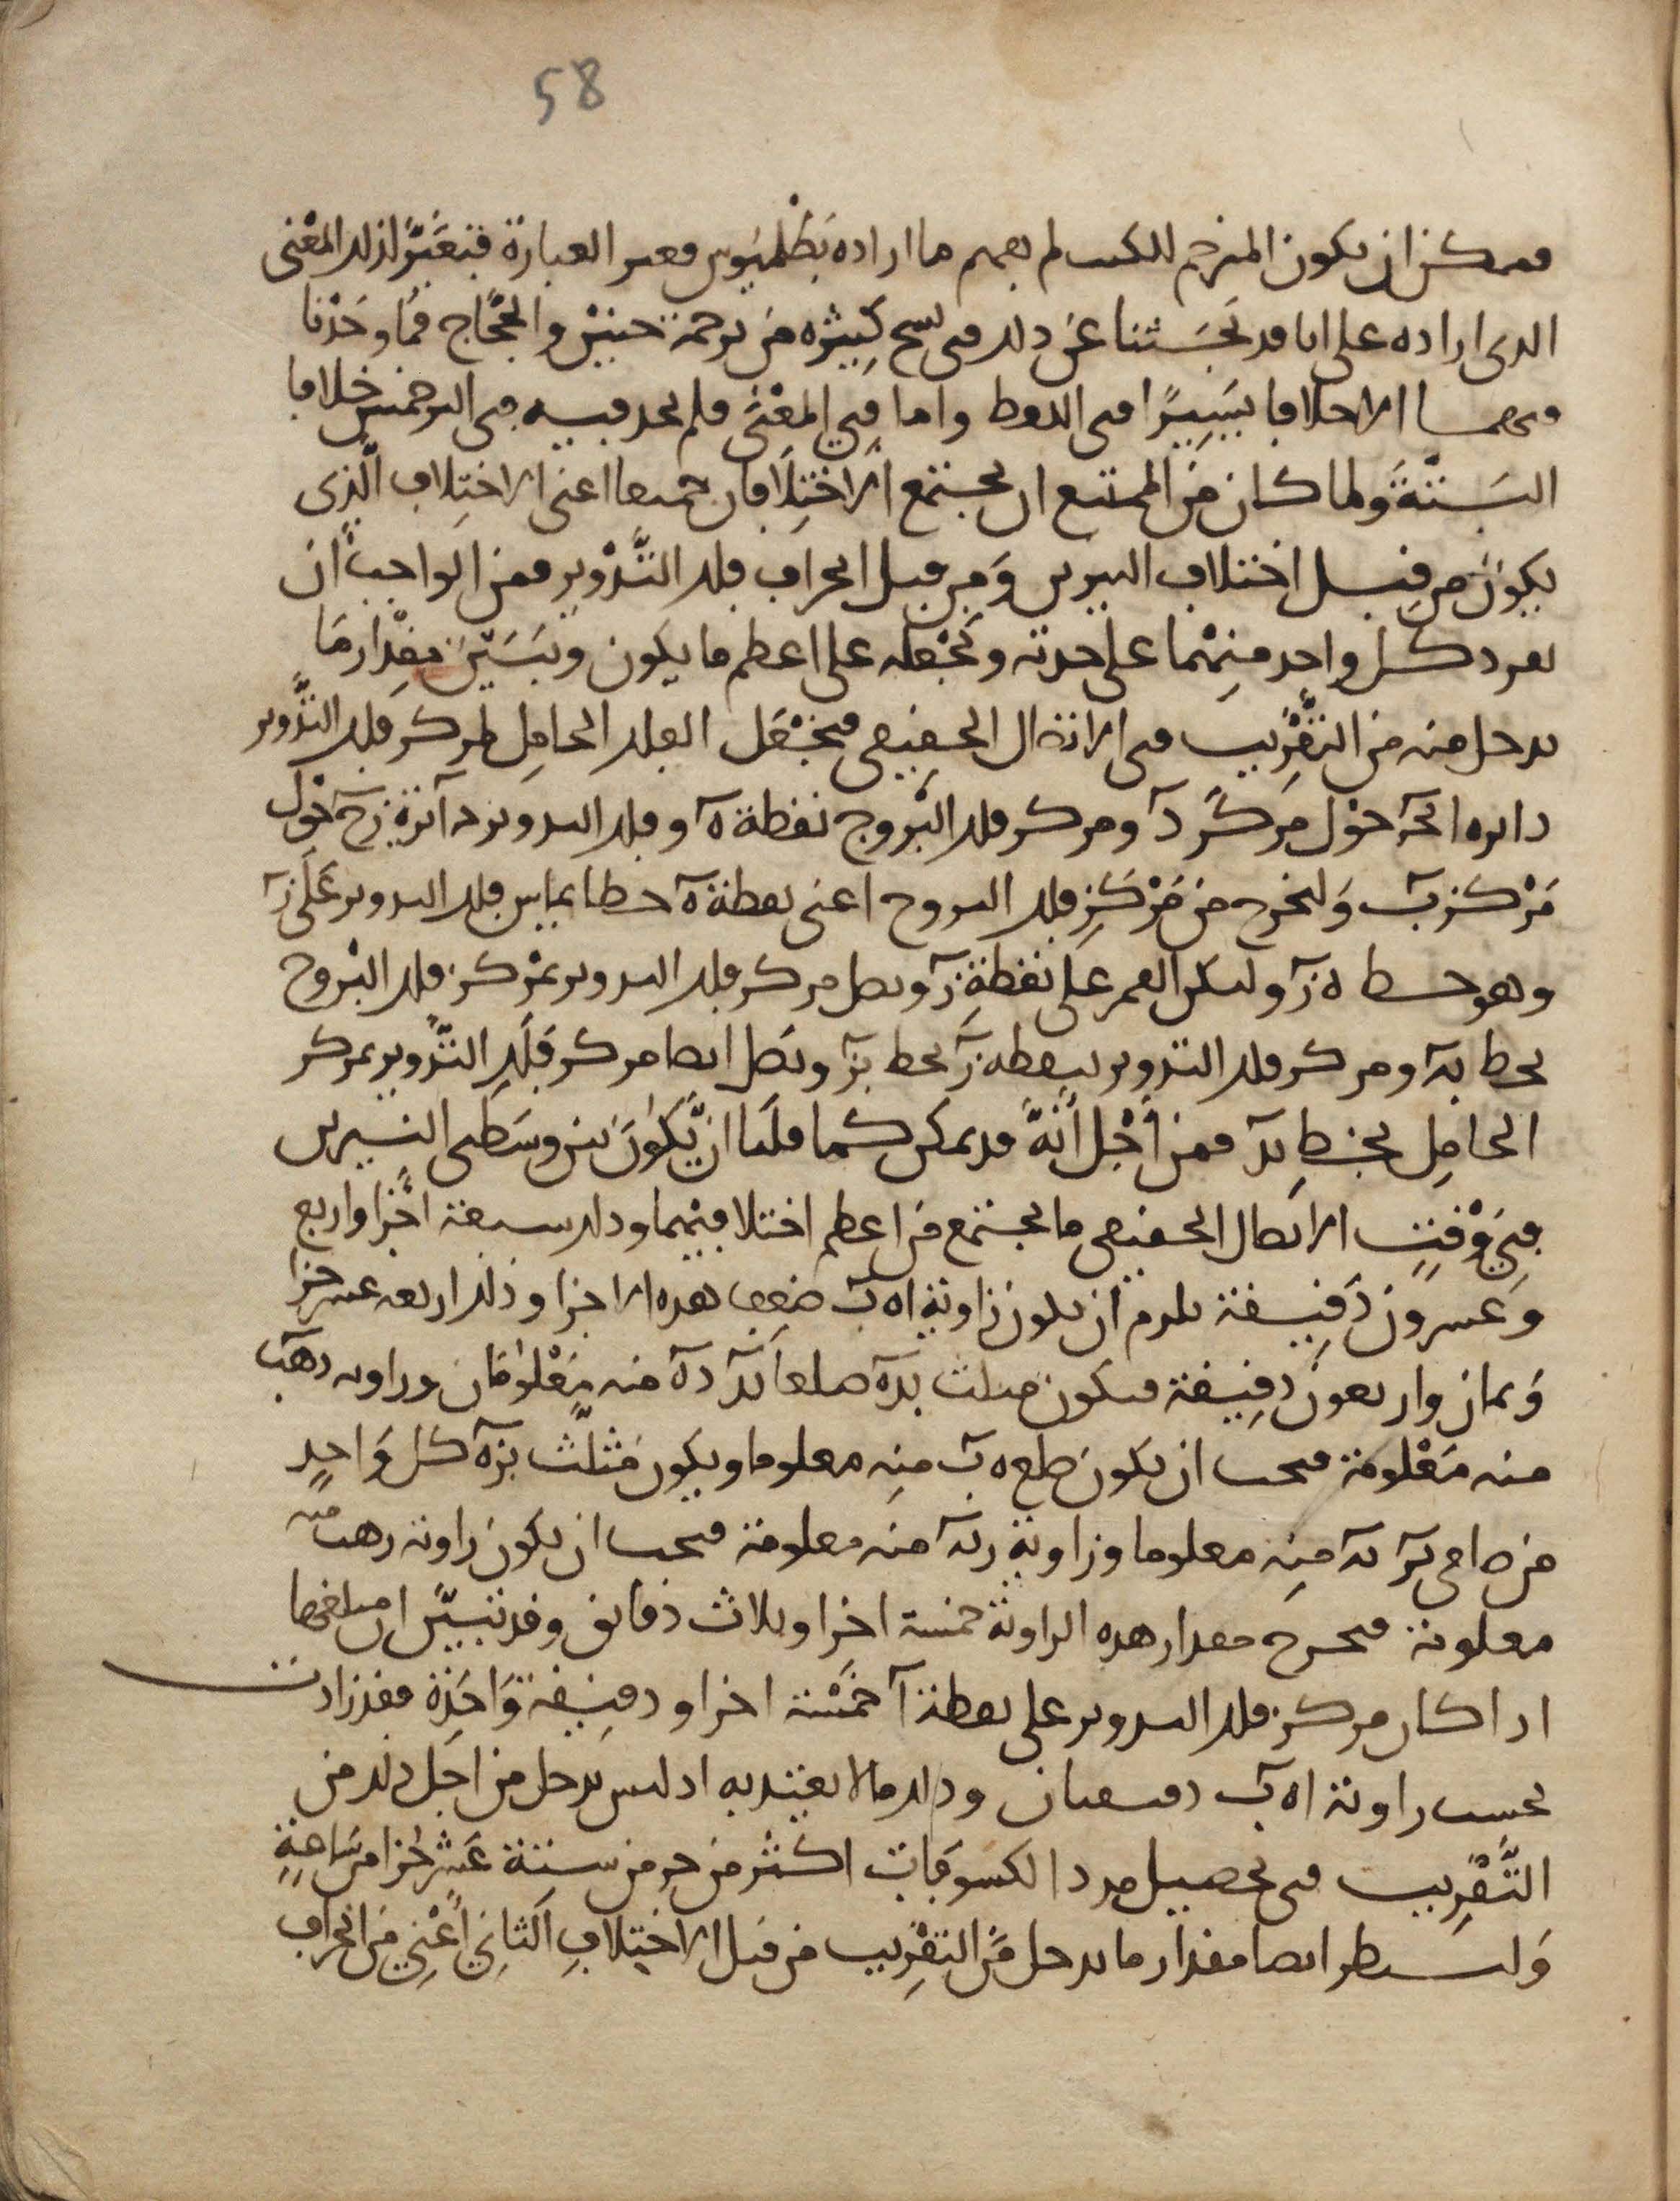 58
فممكن ان يكون المترجم للكتب لم يفهم ما اراده بطلميوس فغير العبارة فتغير لذلك المعنى
الذى اراده على انا قد بحثنا عن ذلك فى نسخ كثيره من ترجمة حنين والحجاج فما وجدنا
فيهما الا خلافا يسيرا فى اللفظ واما في المعنى فلم نجد فيه فى الترجمتين خلافا
البتة ولما كان من الممتنع ان يجتمع الاختلافان جميعا اعنى الاختلاف الذى
يكون من قبل اختلاف النيرين ومن قبل انحراف فلك التدوير فمن الواجب ان
نفرد كل واحد منهما على حدته ونجعله على اعظم ما يكون ونبين مقدار ما
يدخل منه من التقريب فى الاتصال الحقيقى فنجعل الفلك الحامل لمركز فلك التدوير
دايره ابج حول مركز د ومركز فلك البروج نقطة ه وفلك التدوير دآئرة زح حول
مركز ب ولنخرج من مركز فلك البروج اعنى نقطة ه خطا يماس فلك التدوير على ز
وهو خط ه ز وليكن القمر على نقطة ز ونصل مركز فلك التدوير بمركز فلك البروج
بخط به ومركز فلك التدوير بنقطة ز بخط بز ونصل ايضا مركز فلك التدوير بمركز
الحامل بخط بد فمن أجل أنه قد يمكن كما قلنا ان يكون بين وسطى النيرين
في وقت الاتصال الحقيقى ما يجتمع من اعظم اختلافيهما وذلك سبعة اجزا واربع
وعشرون دقيقة يلزم ان يكون زاوية اه ب ضعف هذه الاجزا وذلك اربعه عشر جزا
وثمان واربعون دقيقة فيكون مثلث بده ضلعا بد ده منه معلومان وزاويه دهب
منه معلومة فيجب ان يكون ضلع ه ب منه معلوما ويكون مثلث بزه كل واحد
من ضلعى بز به منه معلوما وزاوية زبه منه معلومة فيجب ان يكون زاوية زهب منه
معلومة فيخرج مقدار هذه الزاوية خمسة اجزا وثلاث دقايق وقد تبين ان مبلغها
اذا كان مركز فلك التدوير على نقطة آ خمسة اجزا ودقيقة واحدة فقد زادت
بحسب زاوية اه ب دقيقتان وذلك مالا يعتد به اذ ليس يدخل من اجل ذلك من
التقريب فى تحصيل مدد الكسوفات اكثر من جز من ستة عشر جزا من ساعة
ولننظر ايضا مقدار ما يدخل من التقريب من قبل الاختلاف الثاني أعني من انحراف